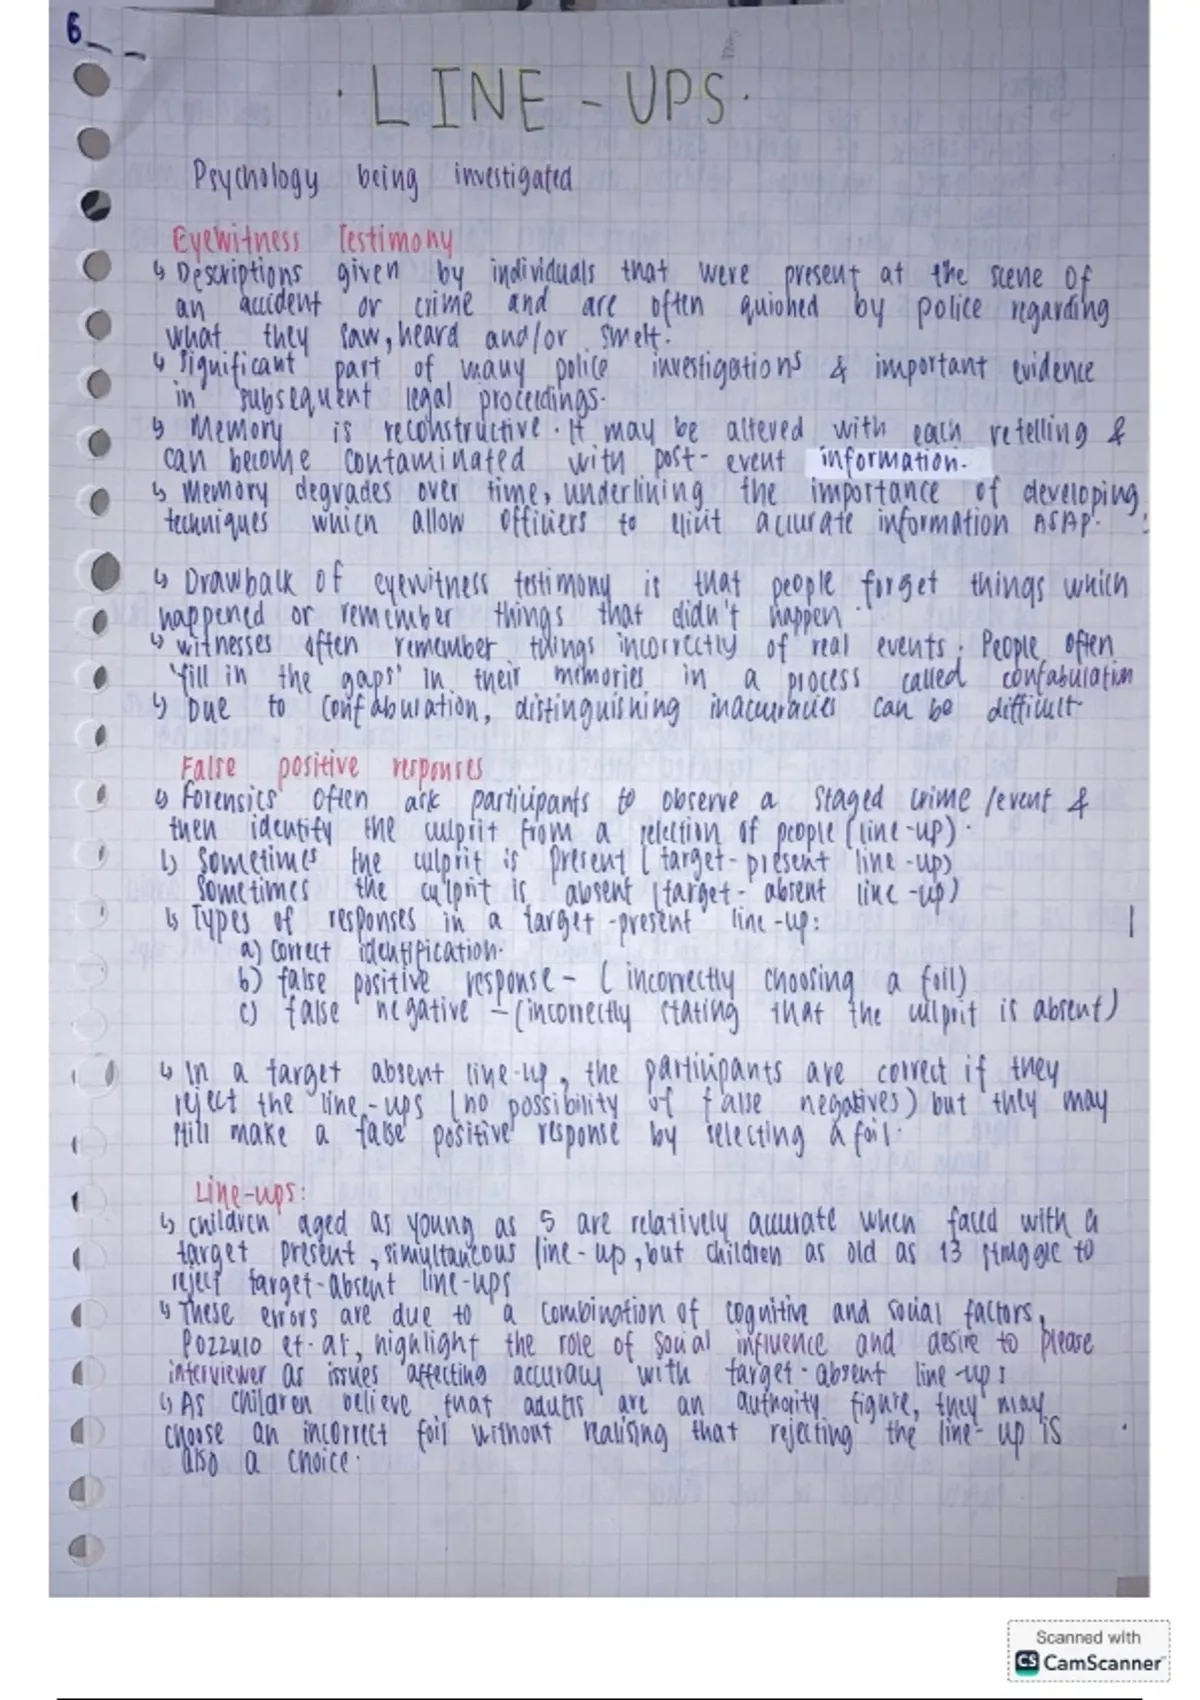 6
· LINE - UPS ·
Psychology being investigated
Eyewitness Testimony
↳ Descriptions given by individuals that were present at the scene of
an accident or crime and are often quiohed by police regarding
what they saw, heard and/or smelt.
↳ significant part of many police investigations & important evidence
in subsequent legal proceedings.
↳ Memory is reconstructive. It may be altered with each retelling &
can become contaminated with post-event information.
↳ Memory degrades over time, underlining the importance of developing
techniques which allow officers to elicit accurate information ASAP.
↳ Drawback of eyewitness testimony is that people forget things which
happened or remember things that didn't happen.
↳ witnesses often remember things incorrectly of real events. People often
'fill in the gaps' in their memories in a process called confabulation
↳ Due to confabulation, distinguishing inaccuracies can be difficult
False positive responses
↳ Forensics often ask participants to observe a staged crime/event &
then identify the culprit from a selection of people (line-up).
↳ Sometimes the culprit is present (target-present line-up)
Sometimes the culprit is absent (target-absent line-up)
↳ Types of responses in a target-present line-up:
a) Correct identification.
b) false positive response - (incorrectly choosing a foil)
c) false negative - (incorrectly stating that the culprit is absent)
↳ In a target absent line-up, the participants are correct if they
reject the line-ups (no possibility of false negatives) but they may
still make a false positive response by selecting a foil.
Line-ups:
↳ children aged as young as 5 are relatively accurate when faced with a
target present, simultaneous line-up, but children as old as 13 struggle to
reject target-absent line-ups
↳ These errors are due to a combination of cognitive and social factors,
Pozzulo et. al, highlight the role of social influence and desire to please
interviewer as issues affecting accuracy with target-absent line-ups
↳ As children believe that adults are an authority figure, they may
choose an incorrect foil without realising that rejecting the line-up is
also a choice.
Scanned with
CS CamScanner